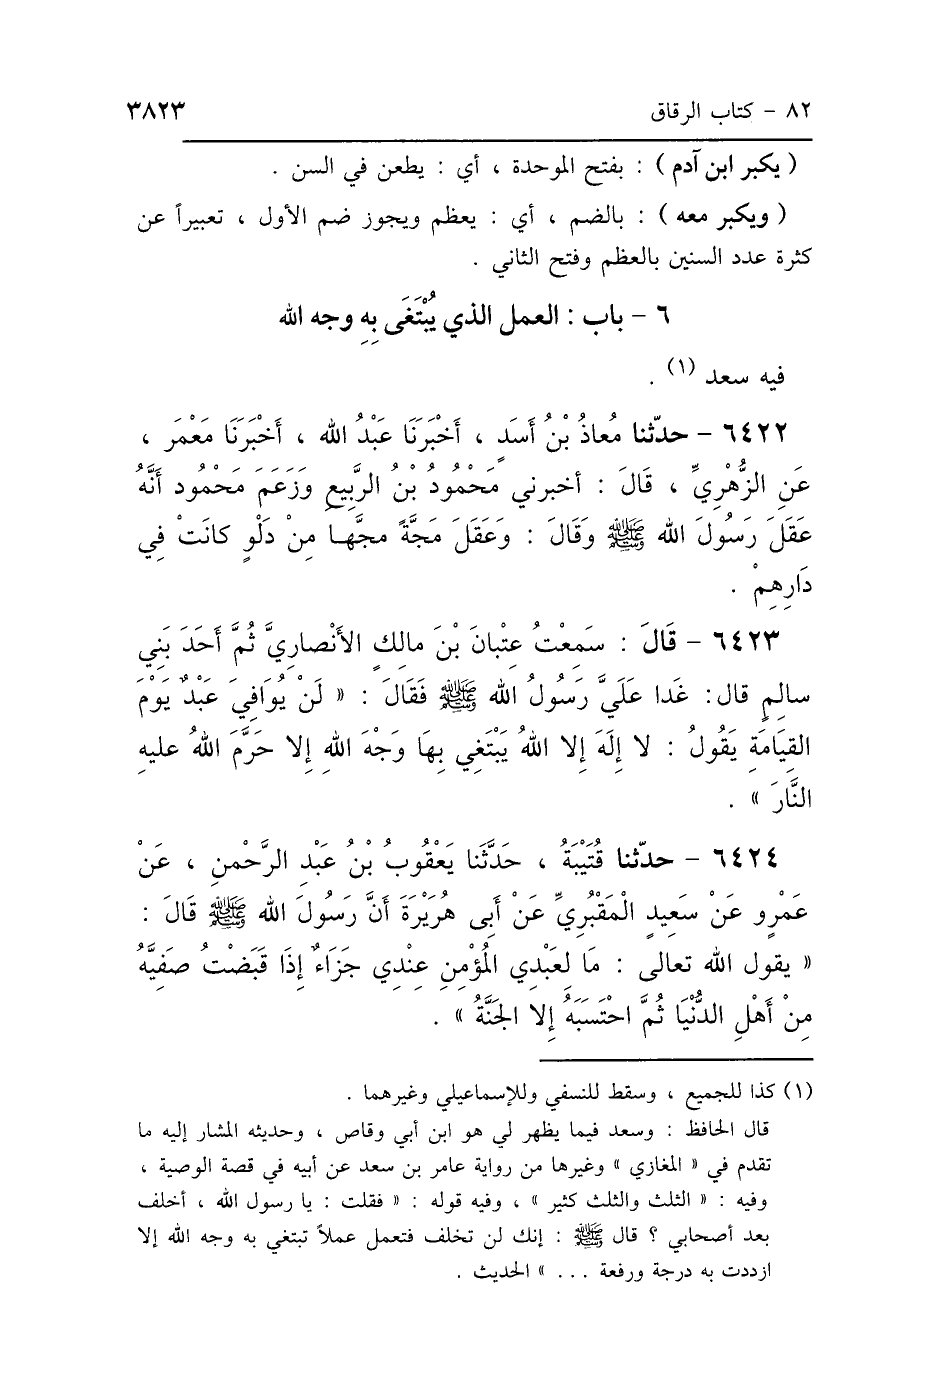 ٨٢ - كتاب الرقاق ٣٨٢٣
( يكبر ابن آدم ) : بفتح الموحدة ، أي : يطعن في السن .
( ويكبر معه ) : بالضم ، أي : يعظم ويجوز ضم الأول ، تعبيراً عن
كثرة عدد السنين بالعظم وفتح الثاني .
٦ - باب : العمل الذي يُبْتَغَى بِهِ وجه الله
فيه سعد (١) .
٦٤٢٢ - حدّثنا مُعاذُ بْنُ أَسَدٍ ، أَخْبَرَنَا عَبْدُ الله ، أَخْبَرَنَا مَعْمَر ،
عَنِ الزُّهْرِيِّ ، قَالَ : أخبرني مَحْمُودُ بْنُ الرَّبِيعِ وَزَعَمَ مَحْمُود أَنَّهُ
عَقَلَ رَسُولَ الله ﷺ وَقَالَ : وَعَقَلَ مَجَّةً مجَّهَا مِنْ دَلْوٍ كانَتْ فِي
دَارِهِمْ .
٦٤٢٣ - قَالَ : سَمِعْتُ عِتْبانَ بْنَ مالِكٍ الأَنْصارِيَّ ثُمَّ أَحَدَ بَنِي
سالِمٍ قال: غَدا عَلَيَّ رَسُولُ الله ﷺ فَقَالَ : « لَنْ يُوَافِيَ عَبْدٌ يَوْمَ
القِيَامَةِ يَقُولُ : لا إِلَهَ إلا اللهُ يَبْتَغِي بِهَا وَجْهَ اللهِ إلا حَرَّمَ اللهُ عليهِ
النَّارَ » .
٦٤٢٤ - حدّثنا قُتَيْبَةُ ، حَدَّثَنا يَعْقُوبُ بْنُ عَبْدِ الرَّحْمنِ ، عَنْ
عَمْرٍو عَنْ سَعِيدٍ الْمَقْبُرِيِّ عَنْ أَبِى هُرَيْرَةَ أَنَّ رَسُولَ الله ﷺ قَالَ :
« يقول الله تعالى : مَا لِعَبْدِي المُؤْمِنِ عِنْدِي جَزَاءٌ إِذَا قَبَضْتُ صَفِيَّهُ
مِنْ أَهْلِ الدُّنْيَا ثُمَّ احْتَسَبَهُ إلا الجَنَّةُ » .
(١) كذا للجميع ، وسقط للنسفي وللإسماعيلي وغيرهما .
قال الحافظ : وسعد فيما يظهر لي هو ابن أبي وقاص ، وحديثه المشار إليه ما
تقدم في « المغازي » وغيرها من رواية عامر بن سعد عن أبيه في قصة الوصية ،
وفيه : « الثلث والثلث كثير » ، وفيه قوله : « فقلت : يا رسول الله ، أخلف
بعد أصحابي ؟ قال ﷺ : إنك لن تخلف فتعمل عملاً تبتغي به وجه الله إلا
ازددت به درجة ورفعة ... » الحديث .